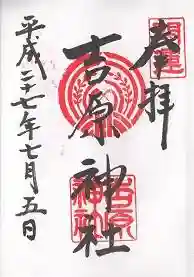 開運
奉拝
吉原神社
吉原神社
平成二十七年七月五日